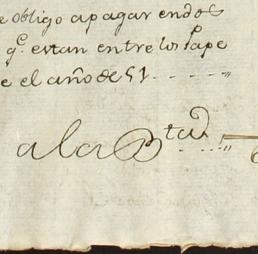 e obligo apagar endos
q.e estan entre los Pape
e el año de 51.
ala B.tad